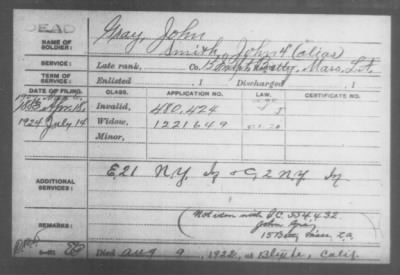 DEAD
NAME OF SOLDIER: Gray, John
Smith, John H (alias)
SERVICE: Late rank, Co. Batty, Mass. Lt.
TERM OF SERVICE: Enlisted , 1 Discharged , 1
DATE OF FILING. CLASS. APPLICATION NO. LAW. CERTIFICATE NO.
Invalid, 480,424
1924 July 14 Widow, 1221649
Minor,
ADDITIONAL SERVICES: E. 21 N.Y. & G 2 N.Y.
REMARKS: Not iden with I.C. 334,432
John Gray
15 Batty Mass. L.A.
Died Aug 9, 1922, at Blythe, Calif.